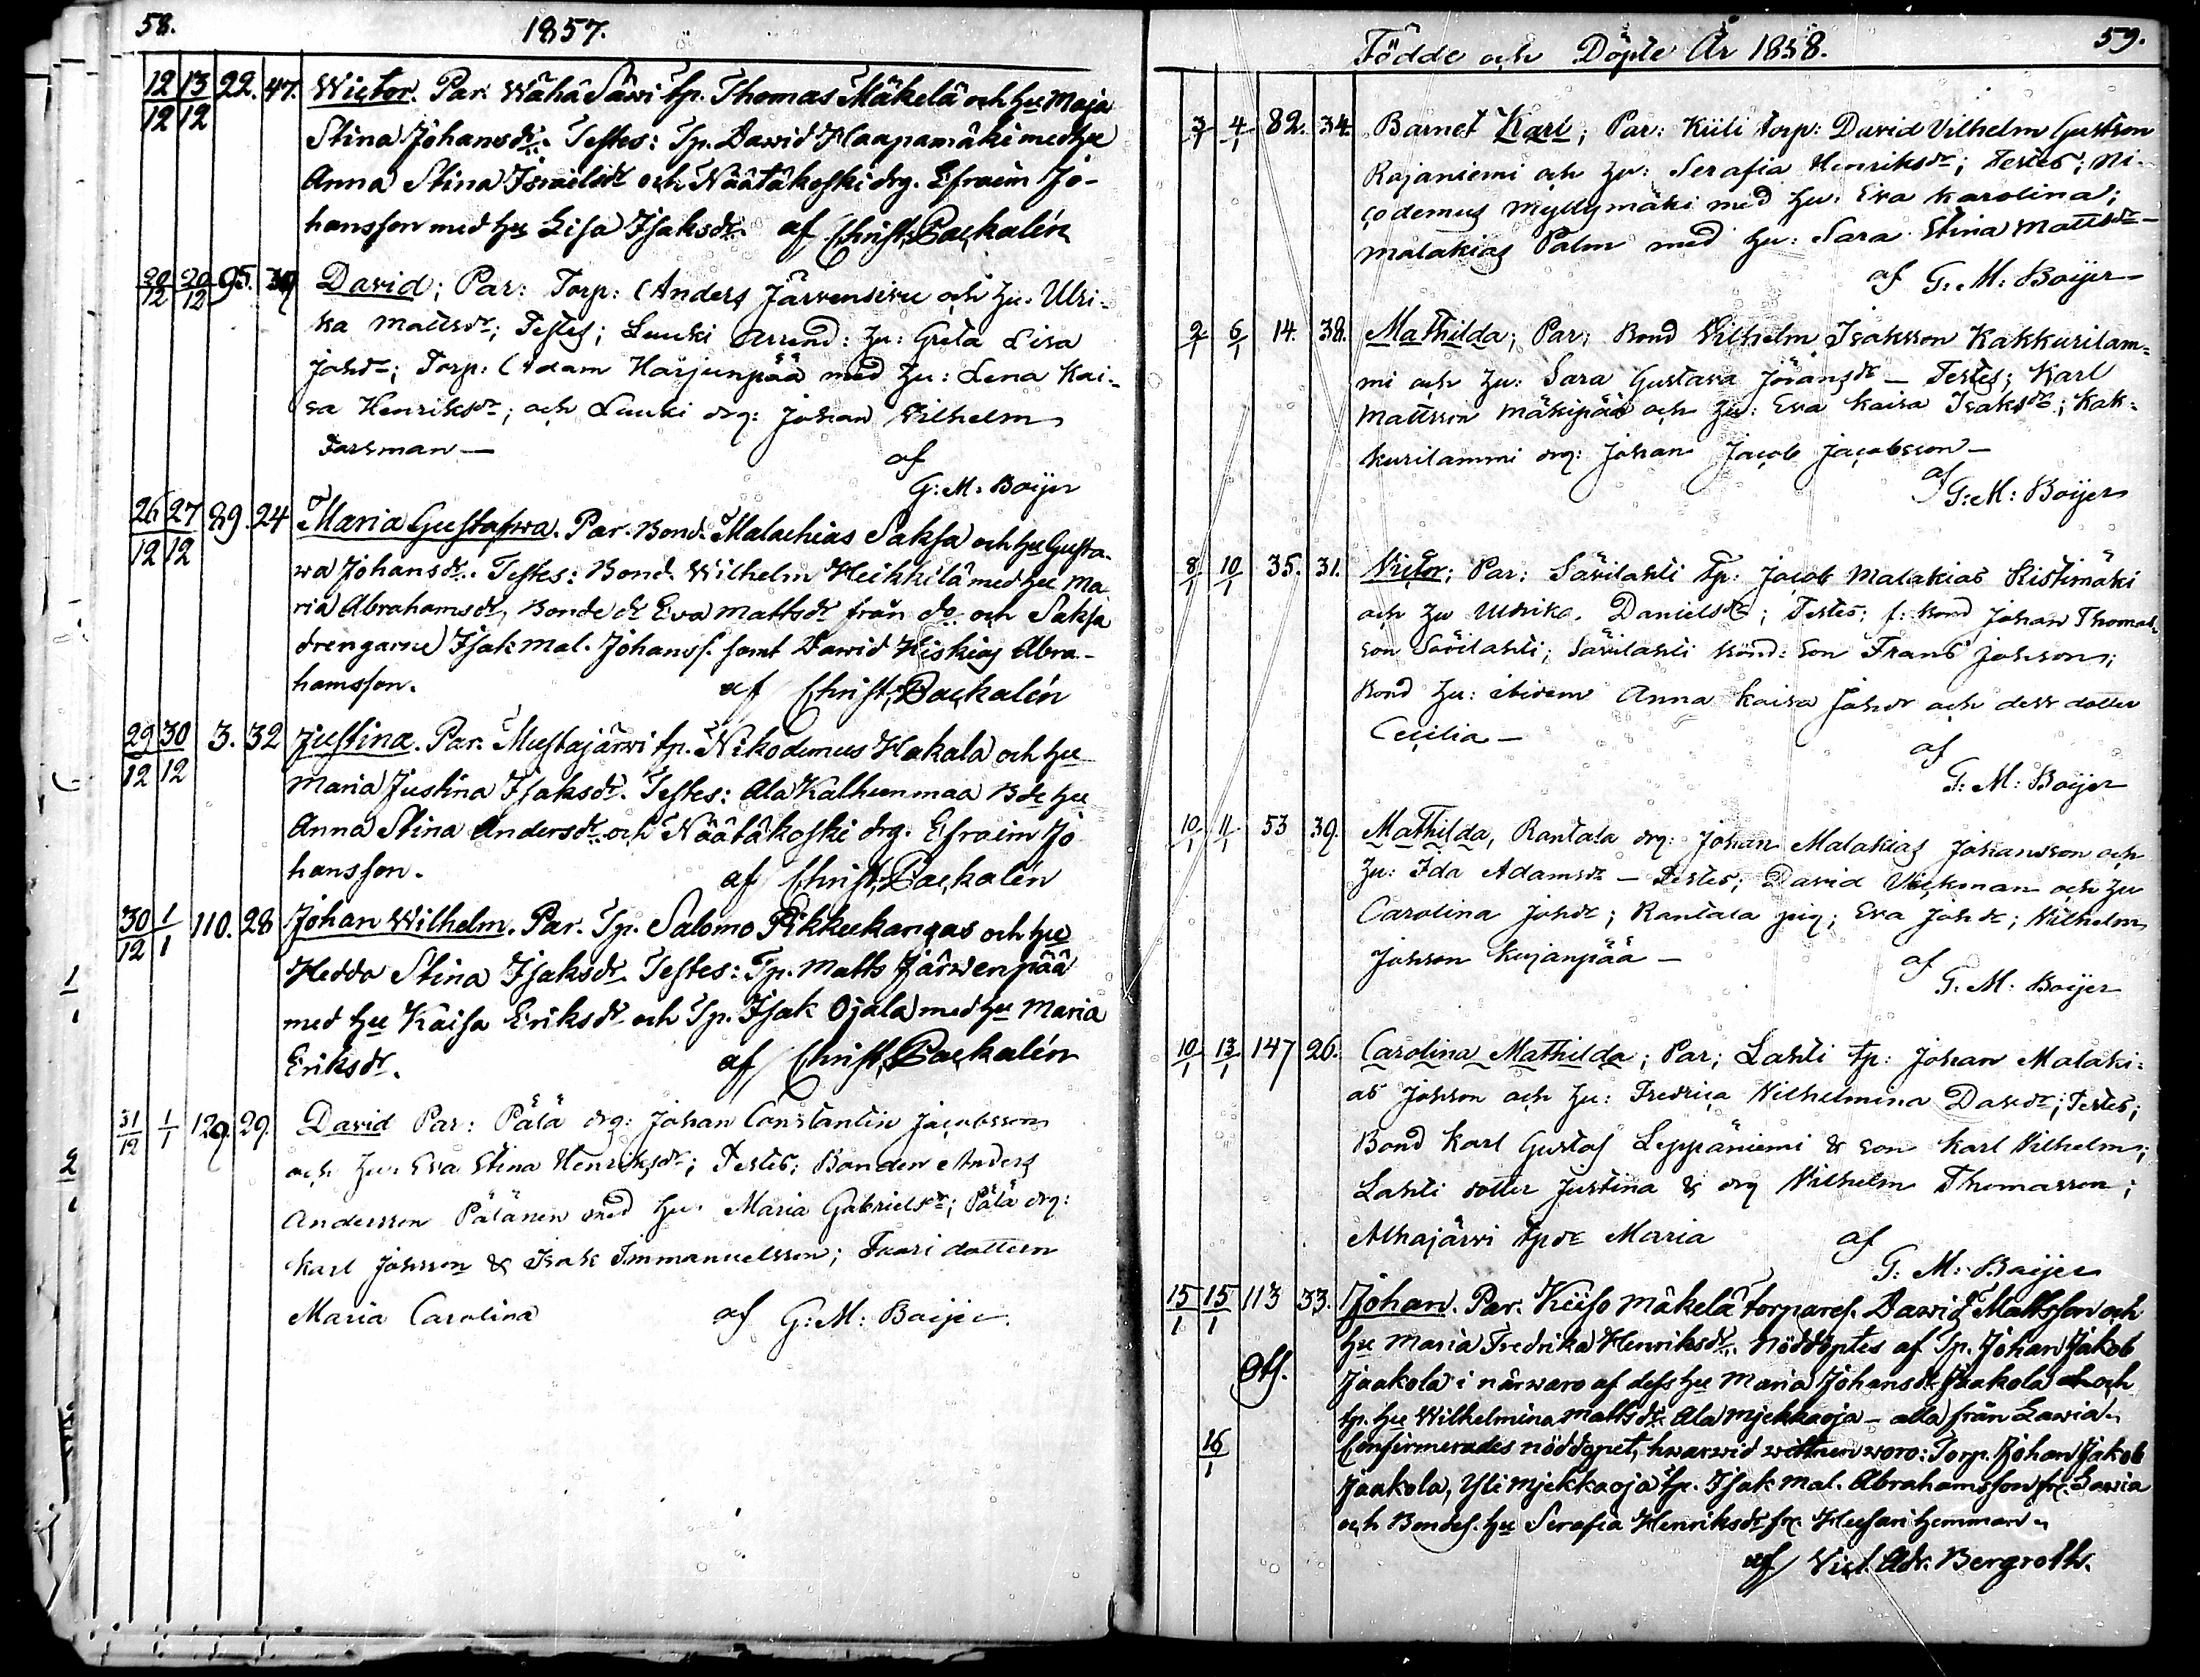 58.
1857.
12/12 13/12 22. 47. Wictor. Par. Wähä Säwi tp. Thomas Mäkelä och hu Maja
Stina Johansdr. Testes: Tp. Dawid Haapamäki med hu
Anna Stina Israelsdr och Näätäkoski drg. Efraim Jo-
hansson med hu Lisa Isaksdr. af Christ. Backalén
20/12 20/12 95. David; Par: Torp: Anders Järvensivu och hu. Ulri-
ka Mattsdr; Testes; Luuki Arrend: hu: Greta Lisa
Johdr; Torp: Adam Harjunpää med hu: Lena Kai-
sa Henriksdr; och Luuki drg: Johan Vilhelm
Forsman — af
G: M: Boijer
26/12 27/12 89. 24 Maria Gustafwa. Par. Bond. Malachias Saksa och hu Gusta-
wa Johansdr. Testes: Bond. Wilhelm Heikkilä med hu Ma
ria Abrahamsdr, Bonde dr Eva Mattsdr från do och Saksa
drengarne Isak Mal. Johanss. samt Dawid Hiskias Abra-
hamsson. af Christ. Backalén
29/12 30/12 3. 32 Justina. Par. Mustajärwi tp. Nikodemus Hakala och hu
Maria Justina Isaksdr. Testes: Ala Kalhunmaa Bde hu
Anna Stina Andersdr och Näätäkoski drg. Efraim Jo
hansson. af Christ. Backalén
30/12 1/1 110. 28 Johan Wilhelm. Par. Tp. Salomo Pikkukangas och hu
Hedda Stina Isaksdr. Testes: Tp. Matts Järwenpää
med hu Kaisa Eriksdr och Tp. Isak Ojala med hu Maria
Eriksdr. af Christ. Backalén
31/12 1/1 129. 29. David Par: Pälä drg: Johan Constantin Jacobsson
och hu. Eva Stina Henriksdr; Testes; Bonden Anders
Andersson Pälänen med hu. Maria Gabrielsdr; Pälä drg:
Karl Johsson & Isak Immanuelsson; dottern
Maria Carolina af G: M: Boijer.
Födde och Döpte År 1858.
59.
3/1 4/1 82. 34. Barnet Karl; Par: Kiili torp: David Vilhelm Gustson
Rajaniemi och hu: Serafia Henriksdr; Testes; Ni-
codemus Myllymäki med hu. Eva Karolina;
Malakias Palm med hu: Sara Stina Mattsdr—
af G. M: Boijer—
2/1 6/1 14. 38. Mathilda; Par; Bond Vilhelm Isaksson Kakkurilam-
mi och hu: Sara Gustava Jöransdr — Testes; Karl
Mattsson Mäkipää och hu: Eva Kaisa Isaksdr; Kak-
kurilammi drg: Johan Jacob Jacobsson —
af G: M: Boijer
8/1 10/1 35. 31. Victor; Par: Sävilahti tp: Jacob Malakias Ristimäki
och hu Ulrika. Danielsdr; Testes; f: bond Johan Thomas-
son Sävilahti; Sävilahti bond: son Frans Johsson;
Bond hu: ibidem Anna Kaisa Johdr och dess dotter
Cecilia — af
G: M: Boijer
10/1 11/1 53 39. Mathilda, Rantala drg: Johan Malakias Johansson och
hu: Ida Adamsdr — Testes; David Vickman och hu
Carolina Johdr; Rantala pig; Eva Johdr; Vilhelm
Johsson Kujanpää — af
G: M: Boijer
10/1 13/1 147 26. Carolina Mathilda; Par; Lahti tp: Johan Malaki-
as Johsson och hu: Fredrica Vilhelmina Davdr; Testes;
Bond Karl Gustaf Leppäniemi & son Karl Vilhelm;
Lahti dotter Justina & drg Vilhelm Thomasson;
Alhajärvi tpdr Maria af
G: M: Boijer
15/1 15/1 113 33. Johan. Par. Keiso Mäkelä torpares. Dawid Mattsson och
hu Maria Fredrika Henriksdr. Nöddöptes af Tp. Johan Jakob
Jaakola i närwaro af dess hu Maria Johansdr Jaakola och
tp. hu Wilhelmina Mattsdr Ala Mjekkaoja — alla från Lawia.
16/1 Confirmerades nöddopet, hwarwid wittnen woro: Torp. Johan Jakob
Jaakola, Yli Mjekkaoja tp. Isak Mal. Abrahamsson fr. Lawia
och Bondes. hu Serafia Henriksdr fr. Hemman.
af Vict. Adr. Bergroth.